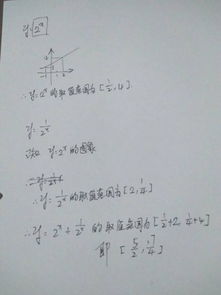 y=2ˣ
-1
∴ y=2ˣ 的取值范围为 [1/2, 4]
y=1/2ˣ
y=2ˣ 的图象
∴ y=1/2ˣ 的取值范围为 [2, 1/4]
∴ y=2ˣ+1/2ˣ 的取值范围为 [1/2+2, 1/4+4]
即 [5/2, 17/4]